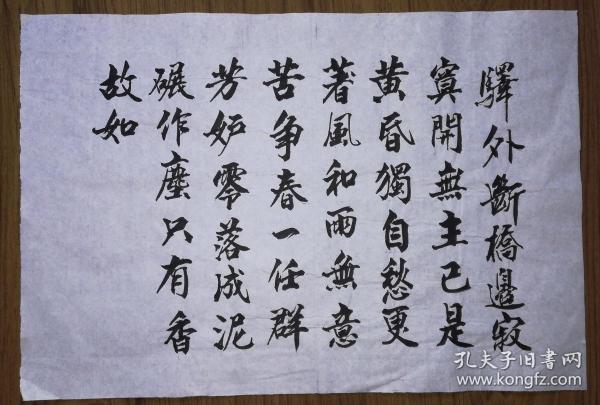 驛外斷橋邊寂
寞開無主已是
黄昏獨自愁更
著風和雨無意
苦争春一任群
芳妒零落成泥
碾作塵只有香
故如
孔夫子旧書网
www.kongfz.com